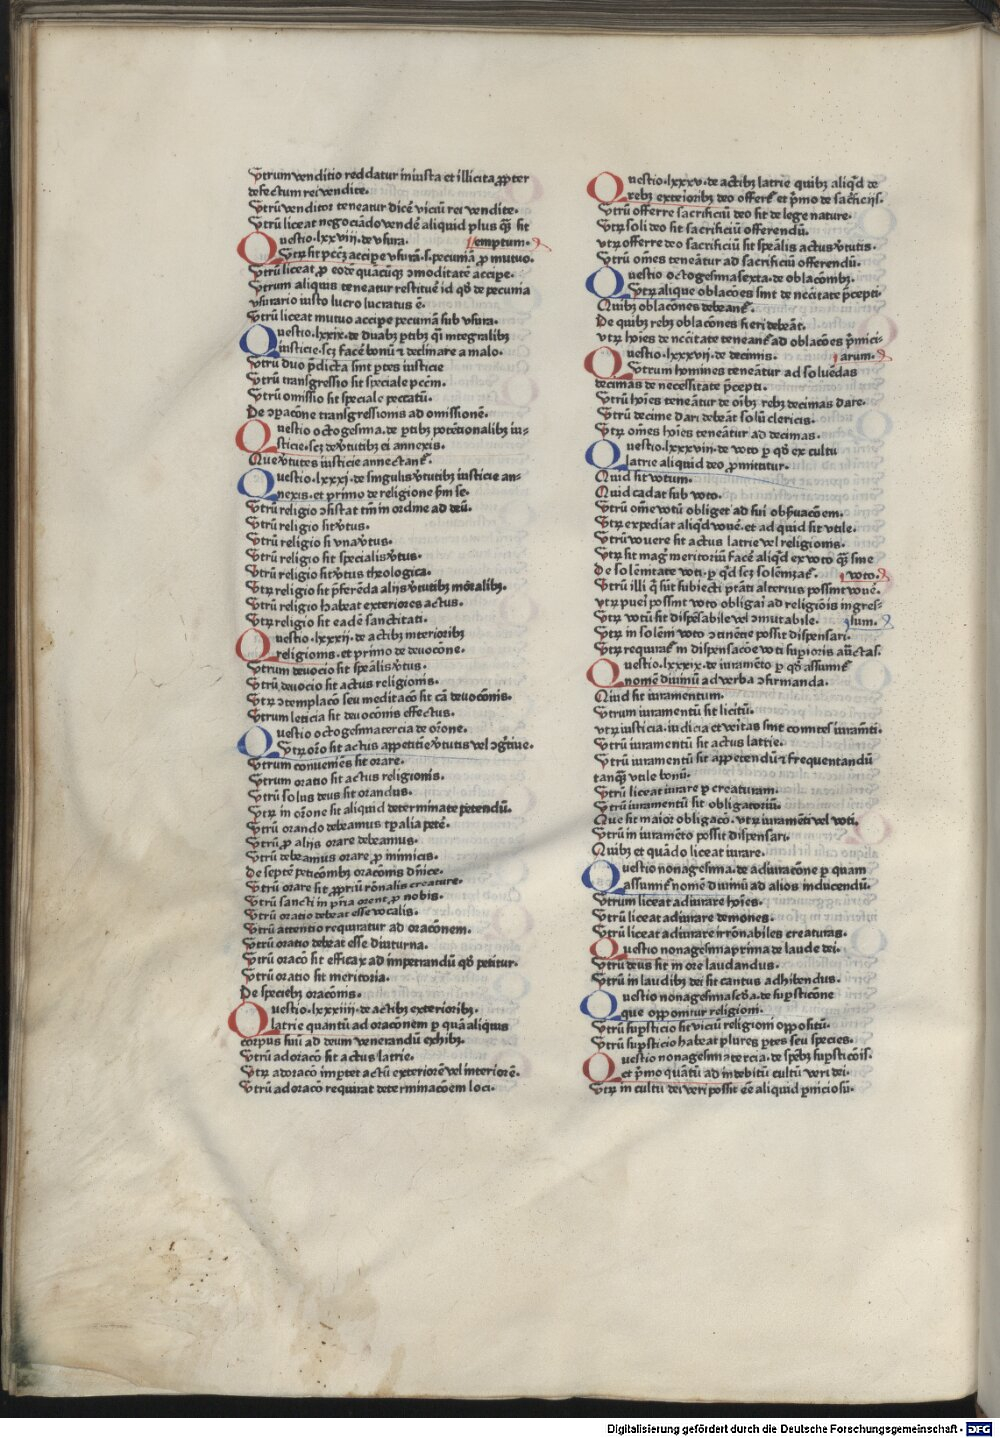 Utrum venditio reddatur iniusta et illicita ꝓpter
defectum rei vendite.
Utrū venditor teneatur dicē viciū rei vendite.
Utrū liceat negociādo vendē aliquid plus qʒ̄ sit
Questio .lxxviij. de vsura. emptum.
Utꝝ sit pctm̄ accipe vsurā .s. pecuniā ꝓ mutuo.
Utrū liceat ꝓ eodē quacūqʒ ꝯmoditatē accipe.
Utrum aliquis teneatur restituē id qd̄ de pecunia
vsurario iusto lucro lucratus ē.
Utrū liceat mutuo accipe pecuniā sub vsura.
Questio .lxxix. de duabʒ ptibʒ q̄si integralibʒ
iusticie .scʒ facē bonū ⁊ declinare a malo.
Utrū duo p̄dicta sint ptes iusticie
Utrū transgressio sit speciale pctm̄.
Utrū omissio sit speciale peccatū.
De ꝯparacōne transgressionis ad omissionē.
Questio octogesima. de ptibʒ potētionalibʒ iu-
sticie .scʒ de v̄tutibʒ ei annexis.
Que v̄tutes iusticie annectant̄.
Questio .lxxxj. de singulis v̄tutibʒ iusticie an-
nexis. et primo de religione ẜm se.
Utrū religio ꝯsistat tm̄ in ordine ad deū.
Utrū religio sit v̄tus.
Utrū religio sit vna v̄tus.
Utrū religio sit specialis v̄tus.
Utrū religio sit v̄tus theologica.
Utꝝ religio sit p̄ferēda alijs v̄tutibʒ mōralibʒ.
Utrū religio habeat exteriores actus.
Utꝝ religio sit eadē sanctitati.
Questio .lxxxij. de actibʒ interioribʒ
religionis. et primo de deuocōne.
Utrum deuocio sit spēalis v̄tus.
Utrū deuocio sit actus religionis.
Utꝝ ꝯtemplacō seu meditacō sit cā deuocōnis.
Utrum leticia sit deuocōnis effectus.
Questio octogesimatercia de orōne.
Utꝝ orō sit actus appetitiē v̄tutis vel ꝯgītiue.
Utrum conueniēs sit orare.
Utrum oratio sit actus religionis.
Utrū solus deus sit orandus.
Utꝝ in orōne sit aliquid determinate petendū.
Utrū orando debeamus tp̄alia petē.
Utrū ꝓ alijs orare debeamus.
Utrū debeamus orare ꝓ inimicis.
De septē peticōnibʒ oracōnis dn̄ice.
Utrū orare sit ꝓpriū rōnalis creature.
Utrū sancti in pr̄ia orent ꝓ nobis.
Utrū oratio debeat esse vocalis.
Utrū attentio requiratur ad oracōnem.
Utrū oratio debeat esse diuturna.
Utrū oracō sit efficax ad impetrandū qd̄ petitur.
Utrū oratio sit meritoria.
De speciebʒ oracōnis.
Questio .lxxxiiij. de actibʒ exterioribʒ.
latrie quantū ad oracōnem p quā aliquis
corpus suū ad deum venerandū exhibʒ.
Utrū adoracō sit actus latrie.
Utꝝ adoracō imp̄tet actū exteriorē vel interiorē.
Utrū adoracō requirat determinacōem loci.
Questio .lxxxv. de actibʒ latrie quibʒ aliqd̄ de
rebʒ exterioribʒ deo offert̄ et p̄mo de sacrificijs.
Utrū offerre sacrificiū deo sit de lege nature.
Utꝝ soli deo sit sacrificiū offerendū.
vtꝝ offerre deo sacrificiū sit spēalis actus v̄tutis.
Utrū om̄es teneātur ad sacrificiū offerendū.
Questio octogesimasexta. de oblacōnibʒ.
Utꝝ alique oblacōes sint de nc̄citate p̄cepti.
Quibʒ oblacōnes debeant̄.
De quibʒ rebʒ oblacōnes fieri debeāt.
vtꝝ hoīes de nc̄citate teneant̄ ad oblacōes p̄mici-
Questio .lxxxvij. de decimis. arum.
Utrum homines teneātur ad soluēdas
decimas de necessitate p̄cepti.
Utrū hoīes teneātur de oībʒ rebʒ decimas dare.
Utrū decime dari debeāt solū clericis.
Utꝝ om̄es hoīes teneātur ad decimas.
Questio .lxxxviij. de voto p qd̄ ex cultu
latrie aliquid deo ꝓmittitur.
Quid sit votum.
Quid cadat sub voto.
Utrū om̄e votū obliget ad sui obẜuacōem.
Utꝝ expediat aliqd̄ vouē. et ad quid sit vtile.
Utrū vouere sit actus latrie vel religionis.
Utꝝ sit magꝭ meritoriū facē aliqd̄ ex voto qʒ̄ sine
De solēmtate voti. p qd̄ scʒ solēmzat̄. voto.
Utrū illi q̄ sūt subiecti pt̄ati alterius possint vouē.
vtꝝ pueri possint voto obligari ad religiōis ingres-
Utꝝ votū sit dispēsabile vel ꝯmutabile. sum.
Utꝝ in solēm voto ꝯtinētie possit dispensari.
Utꝝ requirat̄ in dispensacōe voti supioris au̅ctas.
Questio .lxxxix. de iuramēto p qd̄ assumit̄
nomē diuinū ad verba ꝯfirmanda.
Quid sit iuramentum.
Utrum iuramentū sit licitū.
vtꝝ iusticia. iudicia et veritas sint comites iuram̄ti.
Utrū iuramentū sit actus latrie.
Utrū iuramentū sit appetendū ⁊ frequentandū
tanqʒ̄ vtile bonū.
Utrū liceat iurare p creaturam.
Utrū iuramentū sit obligatoriū.
Que sit maior obligacō. vtꝝ iuramēti vel voti.
Utrū in iuramēto possit dispensari.
Quibʒ et quādo liceat iurare.
Questio nonagesima. de adiuracōne p quam
assumit̄ nomē diuinū ad alios inducendū.
Utrum liceat adiurare hoīes.
Utrū liceat adiurare demones.
Utrū liceat adiurare irrōnabiles creaturas.
Questio nonagesimaprima de laude dei.
Utrū deus sit in ore laudandus.
Utrū in laudibʒ dei sit cantus adhibendus.
Questio nonagesimascd̄a. de supsticōne
que opponitur religioni.
Utrū supsticio sit viciū religioni oppositū.
Utrū supsticio habeat plures ptes seu species.
Questio nonagesimatercia. de spēbʒ supsticōis.
et p̄mo quātū ad indebitū cultū veri dei.
Utꝝ in cultu dei veri possit ēē aliquid pniciosū.
Digitalisierung gefördert durch die Deutsche Forschungsgemeinschaft - DFG